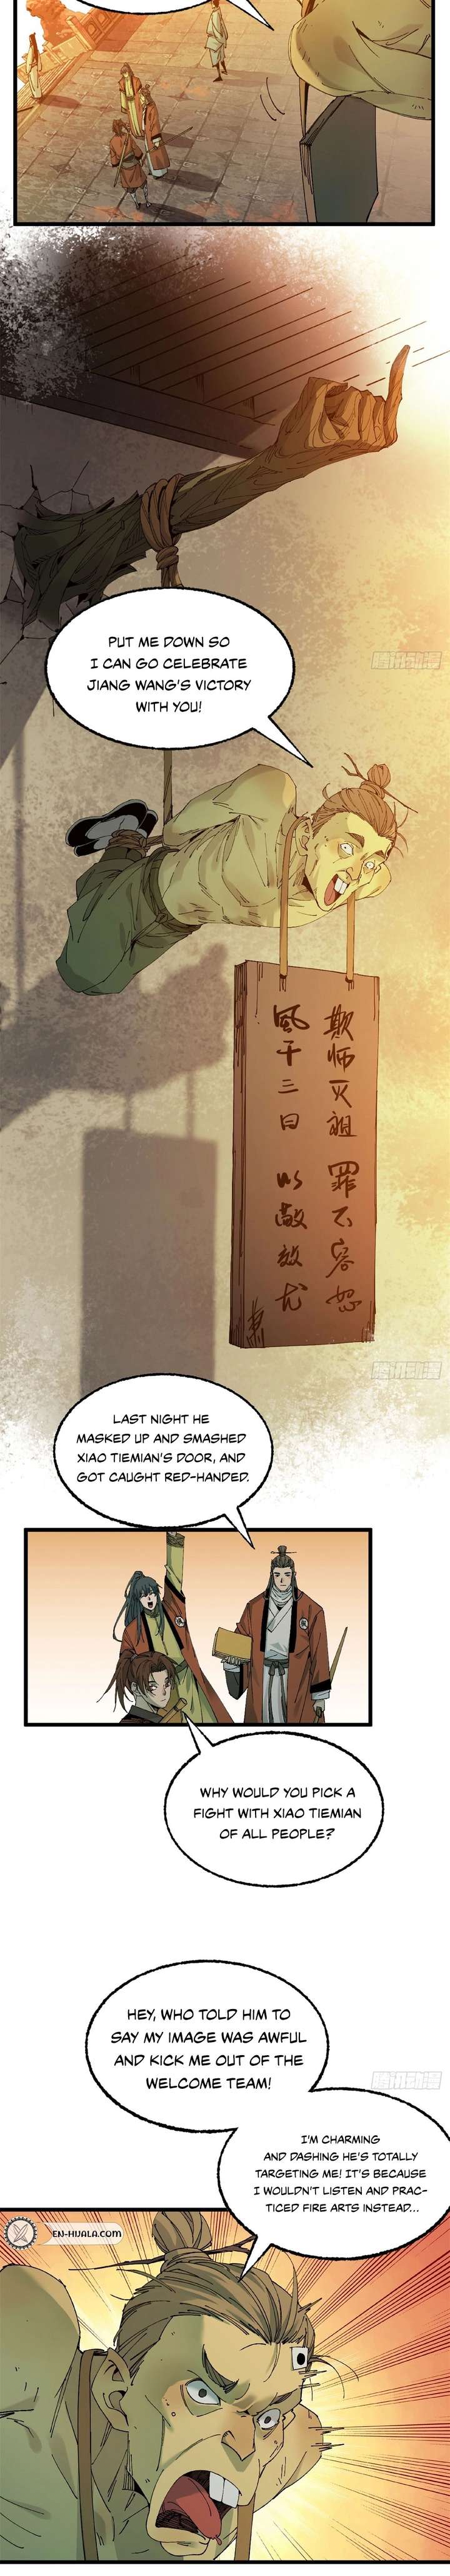 PUT ME DOWN SO
I CAN GO CELEBRATE
JIANG WANG'S VICTORY
WITH YOU!
腾讯动漫
欺师灭祖 罪不容恕
風干三日 以敵效尤
LAST NIGHT HE
MASKED UP AND SMASHED
XIAO TIEMIAN'S DOOR, AND
GOT CAUGHT RED-HANDED.
腾讯动漫
WHY WOULD YOU PICK A
FIGHT WITH XIAO TIEMIAN
OF ALL PEOPLE?
HEY, WHO TOLD HIM TO
SAY MY IMAGE WAS AWFUL
AND KICK ME OUT OF THE
WELCOME TEAM!
腾讯动漫
I'M CHARMING
AND DASHING HE'S TOTALLY
TARGETING ME! IT'S BECAUSE
I WOULDN'T LISTEN AND PRAC-
TICED FIRE ARTS INSTEAD...
EN-HIJALA.COM